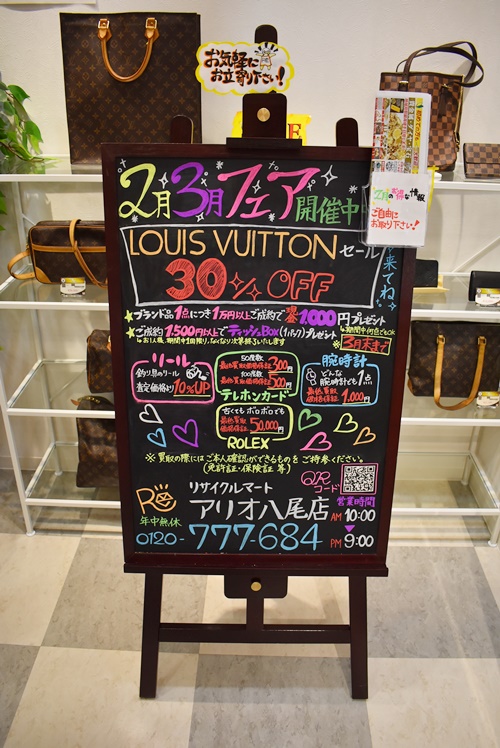 お気軽に
お立寄り下さい!
2月3月フェア開催中
LOUIS VUITTON セール
30% OFF
来てね
★ブランド品1点につき1万円以上ご成約で現金1,000円プレゼント
★ご成約1,500円以上でティッシュBOX(1パック)プレゼント
期間中何回でもOK
※3月末まで
リール
釣り用のリール
査定価格より10%UP
50度数
最低買取価格保証300円
100度数
最低買取価格保証500円
テレホンカード
腕時計
どんな
腕時計でも1点
最低買取
価格保証1,000円
古くてもボロボロでも
最低買取
価格保証50,000円
ROLEX
※買取の際にはご本人確認ができるものをご持参ください。
(免許証・保険証 等)
QR
コード
リサイクルマート
アリオ八尾店
営業時間
AM 10:00
▼
PM 9:00
年中無休
0120-777-684
2月のお得な情報
ご自由に
お取り下さい!